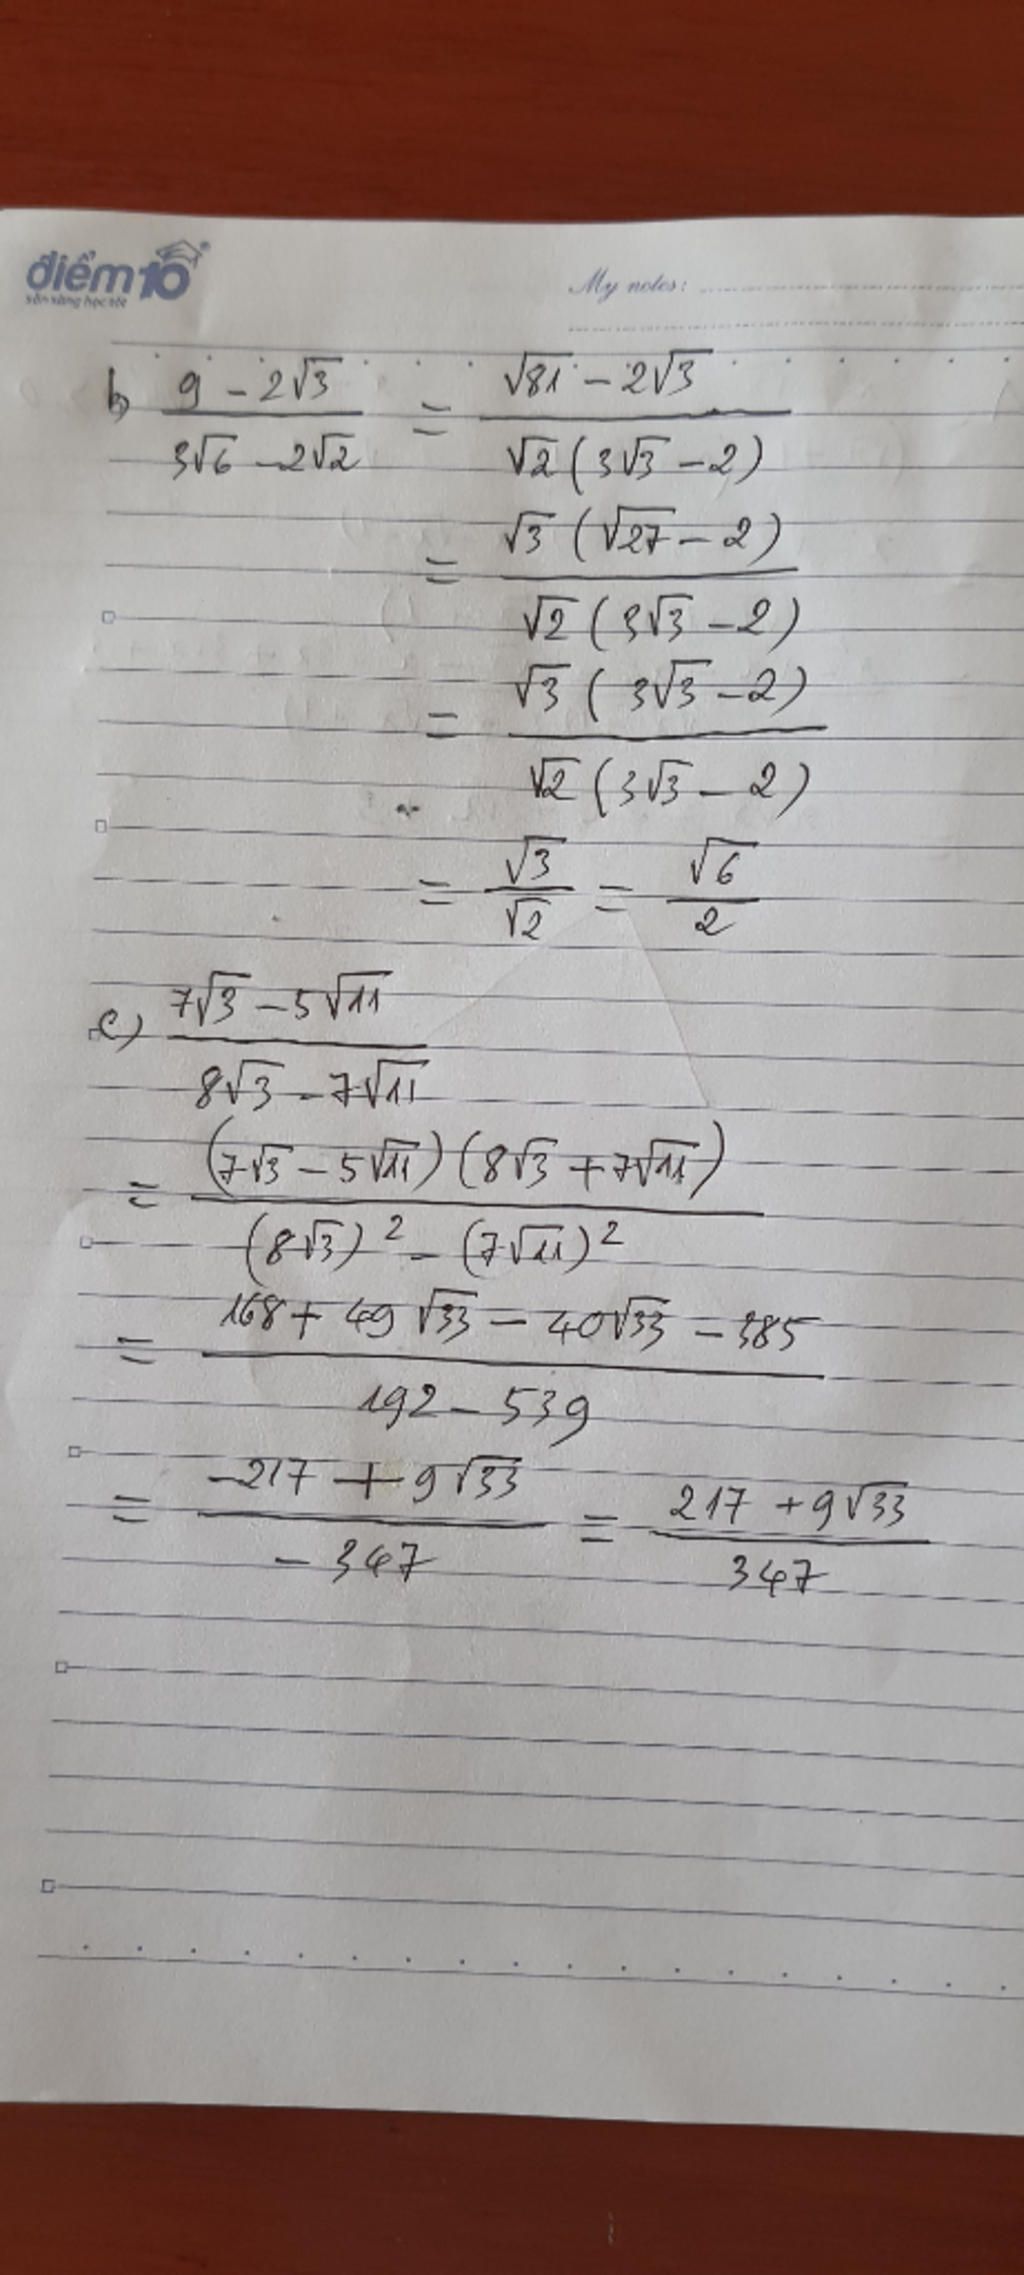 điểm10
sẵn sàng học tốt
My notes:
b) (9 - 2√3)/(3√6 - 2√2) = (√81 - 2√3)/(√2(3√3 - 2))
= (√3(√27 - 2))/(√2(3√3 - 2))
= (√3(3√3 - 2))/(√2(3√3 - 2))
= √3/√2 = √6/2
c) (7√3 - 5√11)/(8√3 - 7√11)
= ((7√3 - 5√11)(8√3 + 7√11))/((8√3)² - (7√11)²)
= (168 + 49√33 - 40√33 - 385)/(192 - 539)
= (-217 + 9√33)/(-347) = (217 + 9√33)/347